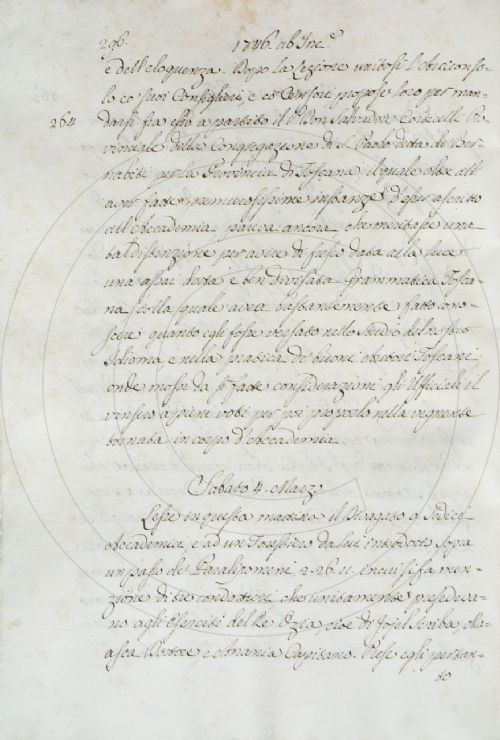 296. 1746. ab Inc.e
e dell'eloquenza. Dopo la lezione unitosi l'Arciconso-
lo co' suoi Consiglieri, e co' Censori propose loro per man-
264 darsi fra essi a partito il P. Don Salvadore Corticelli Pro-
vinciale della Congregazione di S. Paolo detta de' Ber-
nabiti per la Provincia di Toscana il quale oltre all'
aver fatte premurosissime instanze d'esser ascritto
all'Accademia pareva ancora, che meritasse una
tal distinzione per avere di fresco data alla luce
una assai dotta e ben divisata Grammatica Tosca-
na colla quale avea bastantemente fatto cono-
scere quanto egli fosse versato nello studio del nostro
Idioma e nella pratica de' buoni Autori Toscani
onde mossi da sì fatte considerazioni gli Ufficiali il
vinsero a pieni voti per poi proporlo nella vegnente
tornata in corpo d'Accademia.
Sabato 4. Marzo
Lesse in questa mattina il Divagato a Sedici
Accademici e ad un Forestiero da lui introdotto sopra
un passo de' Paralipomeni 2. 26. 11. in cui si fa men-
zione di tre condottieri, che unitamente presedeva-
no agli Eserciti del Re Ozia, cioè di Jiel Scriba, Ma-
asia Dottore, e Anania Capitano. Prese egli pertan-
to